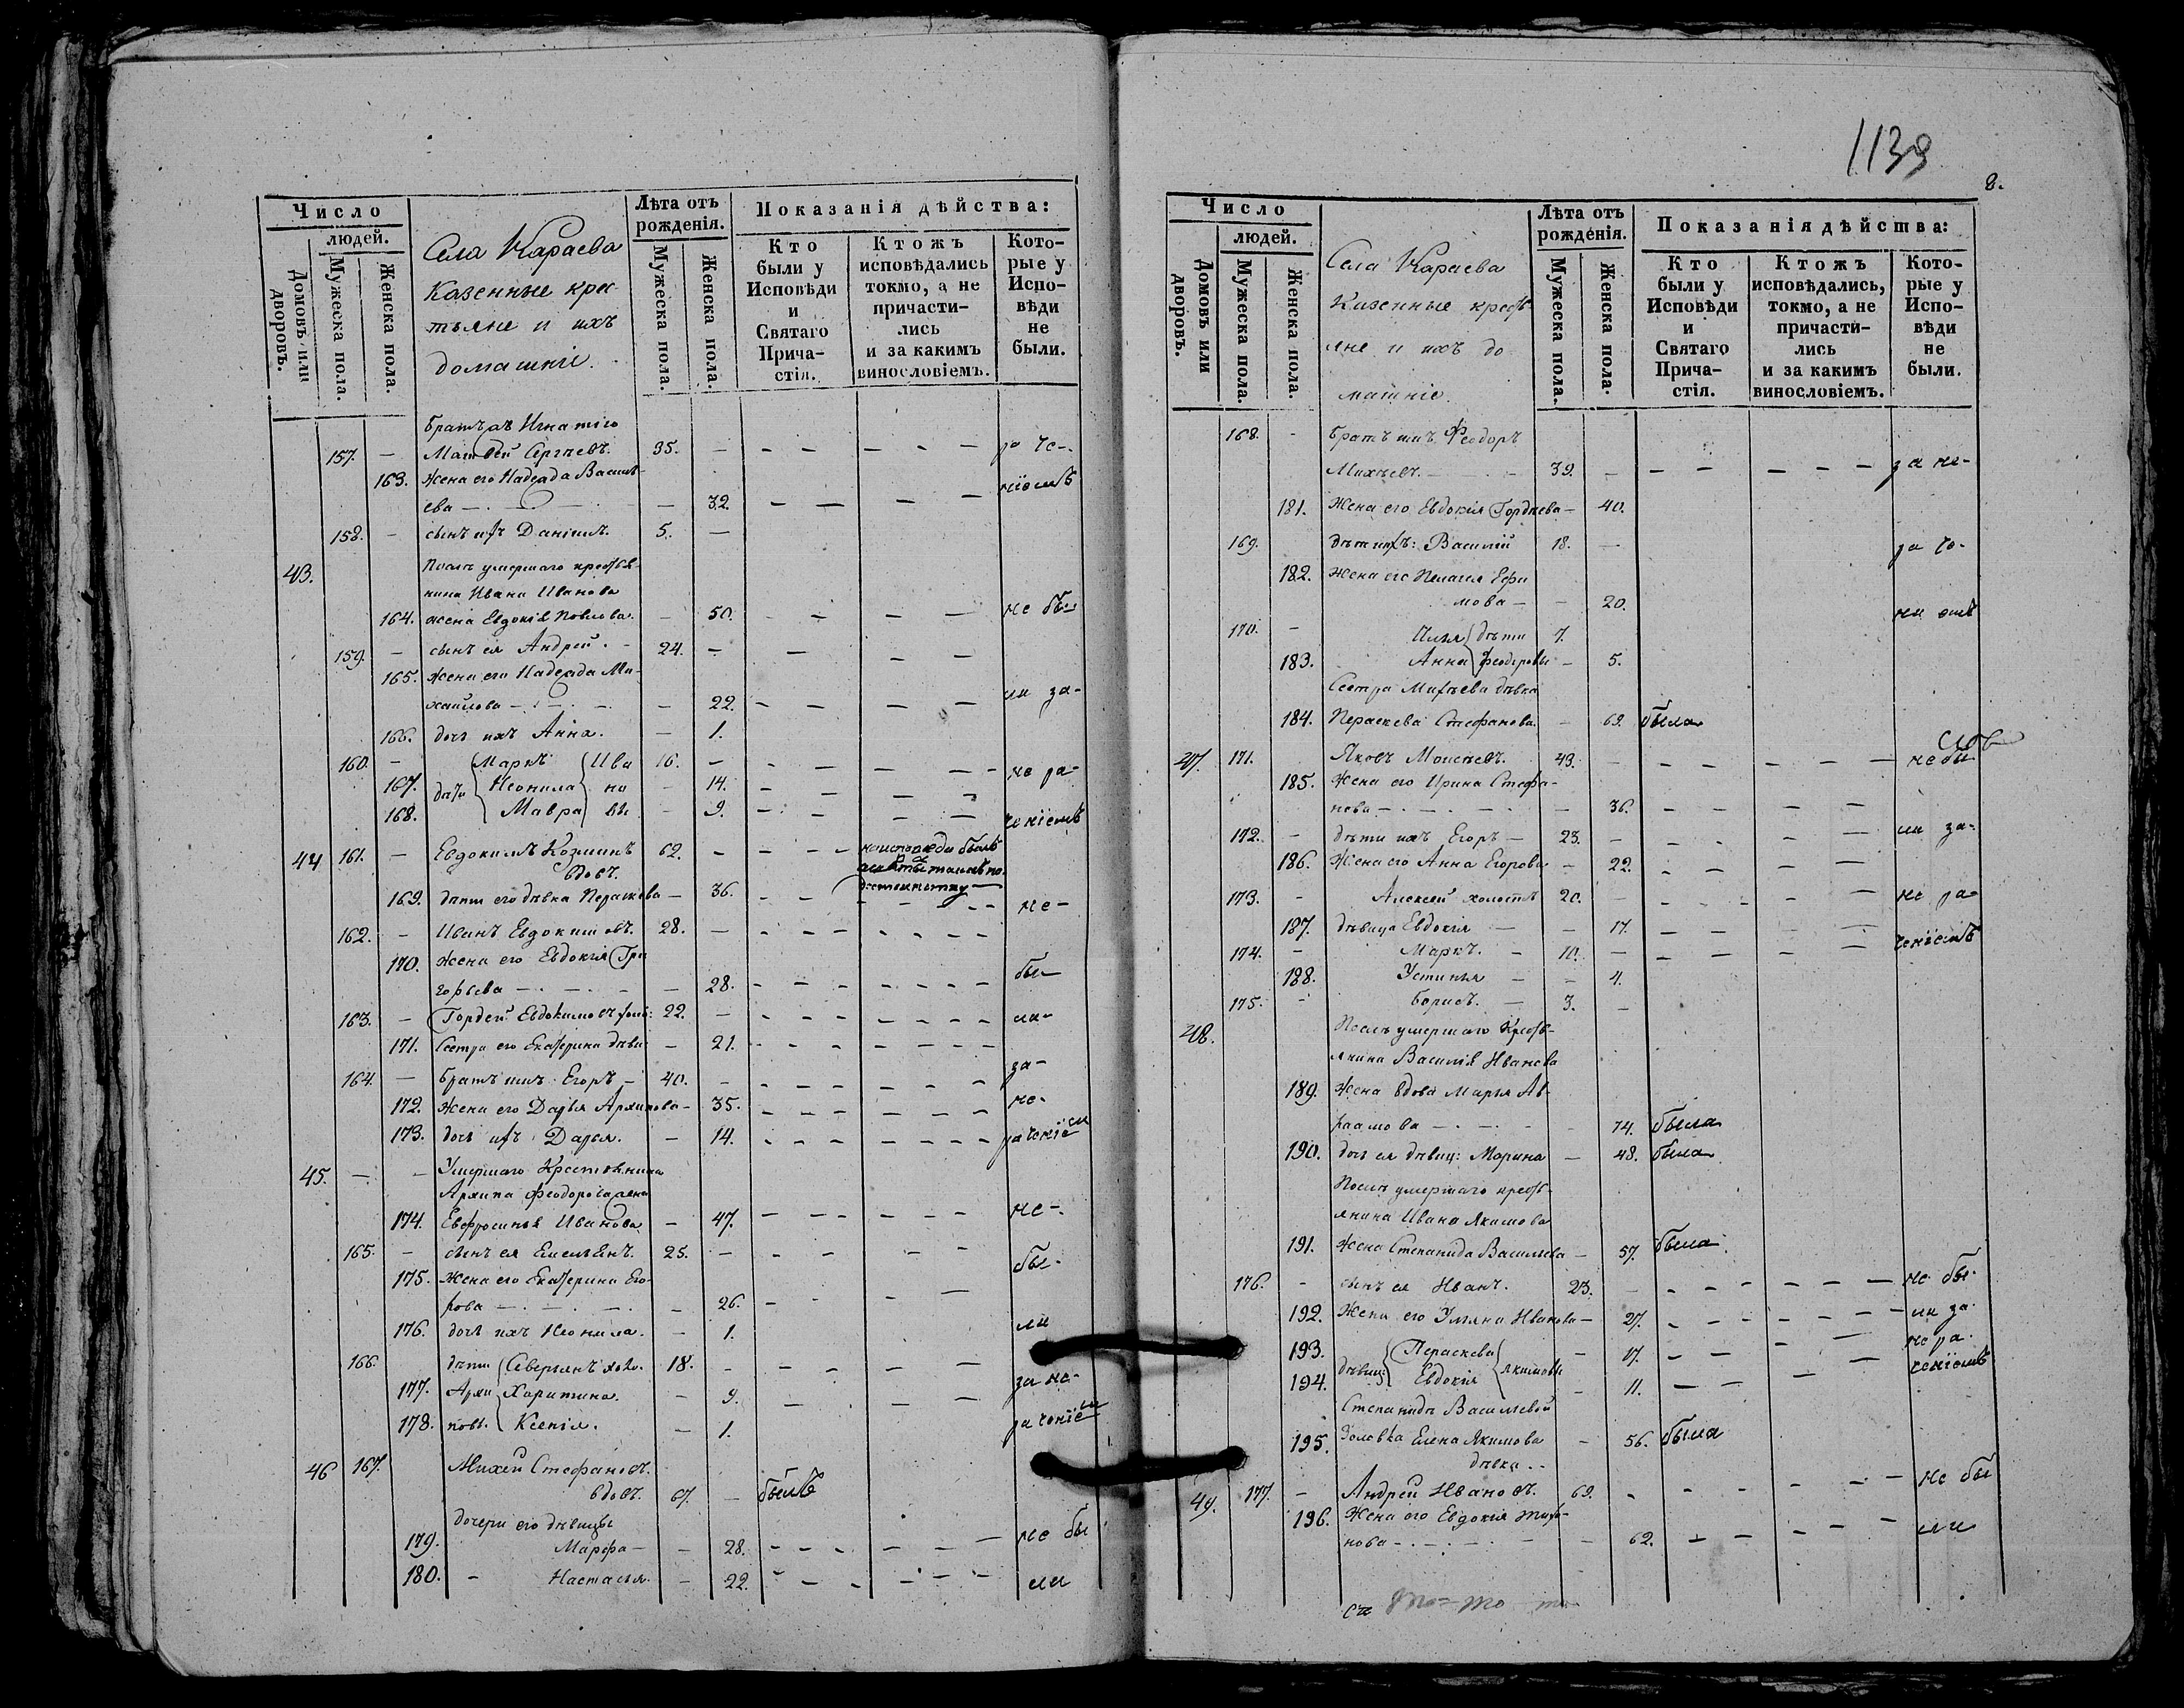 Число
людей.
Домовъ или дворовъ.
Мужеска пола.
Женска пола.
Села Караева
Казенные крес-
тьяне и ихъ
домашніе.
Лѣта отъ
рожденія.
Мужеска пола.
Женска пола.
Показанія дѣйства:
Кто
были у
Исповѣди
и
Святаго
Прича-
стія.
Ктожъ
исповѣдались
токмо, а не
причасти-
лись
и за какимъ
винословіемъ.
Кото-
рые у
Испо-
вѣди
не
были.
братъ Игнатіго
157. — Матвей Сергѣевъ. 35. —
163. Жена его Надежда Василь-
ева — 32.
158. — сынъ ихъ Даніилъ. 5. —
43. Послѣ умершаго кресть-
нина Ивана Иванова
164. жена Евдокія Павлова. — 50. не бы-
159. — сынъ ея Андрей. 24. —
165. жена его Надежда Ми-
хаилова — 22. ли за-
166. дочь ихъ Анна. — 1.
160. — Маркъ Ива 16. — не ра-
167. дѣти Неонила но — 14.
168. Мавра вы — 9. ченіемъ
44 161. — Евдокимъ Козминъ 62. — на исповѣди былъ
вдовъ.
169. дѣти его дѣвка Параскева — 36. не-
162. — Иванъ Евдокимовъ. 28. —
170. Жена его Евдокія Гри
горьева — 28. бы-
163. — Гордей Евдокимовъ хол: 22. — ли-
171. Сестра его Екатерина дѣви: — 21.
164. — братъ ихъ Егоръ — 40. — за-
172. Жена его Дарья Архипова — 35. не-
173. дочь ихъ Дарья. — 14. раченіем
45. — — Умершаго Крестьянина
Архипа Феодорова жена
174. Евфросинья Иванова — 47. не-
165. — сынъ ея Емельянъ. 25. — бы-
175. Жена его Екатерина Его-
рова — 26.
176. дочь ихъ Неонила. — 1. ли
166. дѣти Северьянъ холо. 18.
177. Архи Харитина. — 9. за не-
178. повы. Ксенія. — 1. раченіем
46 167. Михей Стефановъ.
вдовъ. 67. — былъ
дочери его дѣвицы
179. Марфа — — 28. не бы
180. — Настасья. — 22. ли
1139
8.
Число
людей.
Домовъ или дворовъ.
Мужеска пола.
Женска пола.
Села Караева
Казенные кресть-
яне и ихъ до
машніе.
Лѣта отъ
рожденія.
Мужеска пола.
Женска пола.
Показанія дѣйства:
Кто
были у
Исповѣди
и
Святаго
Прича-
стія.
Ктожъ
исповѣдались,
токмо, а не
причасти-
лись
и за какимъ
винословіемъ.
Кото-
рые у
Испо-
вѣди
не
были.
168. — братъ ихъ Феодоръ
Михѣевъ. — 39. — за не-
181. Жена его Евдокія Гордѣева — 40.
169. дѣти ихъ: Василій 18. — ра че-
182. Жена его Пелагея Ефи
мова — — 20. ні емъ
170. — Илья дѣти 7.
183. Анна Феодоровы — 5.
Сестра Михѣева дѣвка
184. Параскева Стефанова — 69. была
47. 171. Яковъ Моисѣевъ. 43. — не бы
185. Жена его Ирина Стефа-
нова — 36.
172. — дѣти ихъ Егоръ — 23. — ли за-
186. Жена его Анна Егорова — 22.
173. — Алексей холостъ 20. — не ра-
187. дѣвица Евдокія — — 17.
174. — Маркъ. — 10. — ченіемъ
188. Устинья — — 4.
175. — Борисъ. — 3. —
48. Послѣ умершаго Кресть-
янина Василія Иванова
189. Жена вдова Марья Ав-
раамова — 74. была
190. дочь ея дѣвиц: Марина — 48. была
Послѣ умершаго кресть-
янина Ивана Якимова
191. Жена Степанида Васильева — 57. была
176. — сынъ ея Иванъ. 23. — не бы-
192. Жена его Ульяна Иванова — 27. ли за-
193. Параскева — 17. не ра-
дѣвицы Якимовы
194. Евдокія — 11. ченіемъ
Степаниды Васильевой
195. Золовка Елена Якимова — 56. была
дѣвка.
49. 177. — Андрей Ивановъ. 69. не бы
196. Жена его Евдокія Тихо-
нова — 62. ли